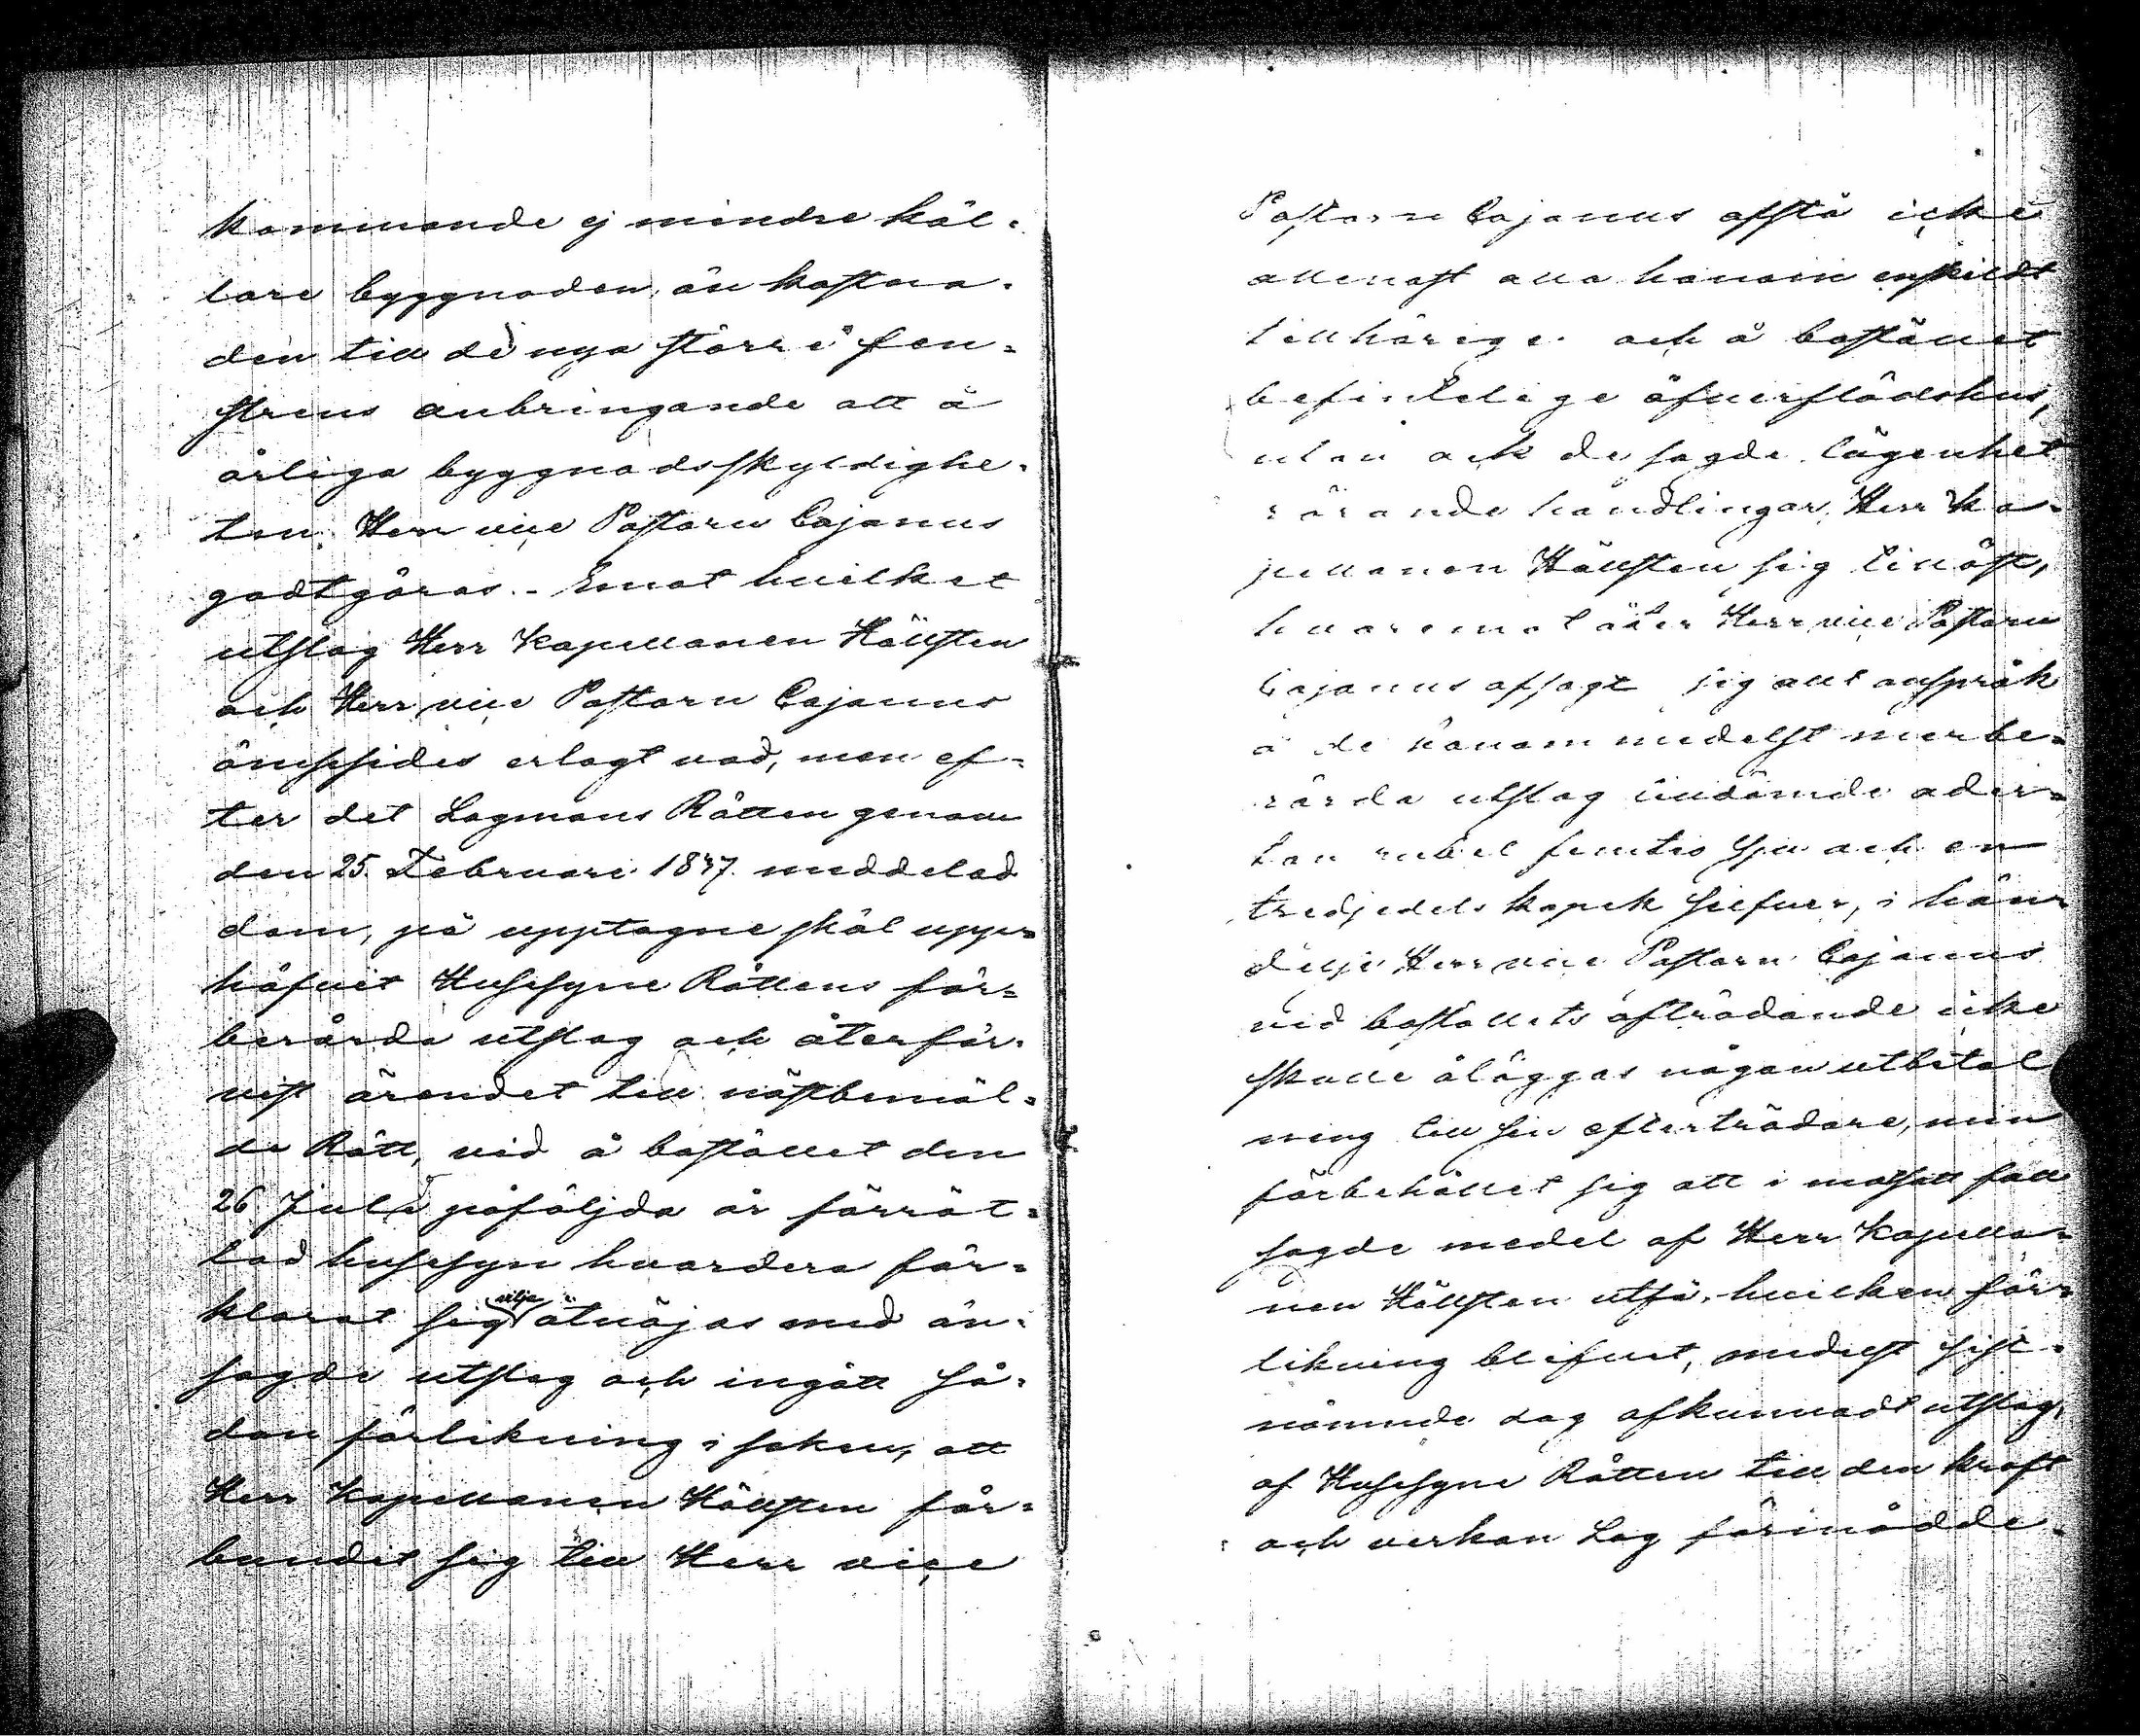 kommande ej mindre käl-
lare byggnaden, än kostna-
den till de nya större fön-
strens anbringande att å
årliga byggnadsskyldighe-
ten Herr vice Pastorn Cajanus
godtgöras. - Emot hvilket
utslag Herr Kapellanen Hällsten
och Herr vice Pastorn Cajanus
ömsesides erlagt vad, men ef-
ter det Lagmans Rätten genom
den 25. Februari 1847. meddelad
dom, på upptagne skäl upp-
häfvit Husesyne Rättens för-
berörde utslag och återför-
vist ärendet till nästbemäl-
de Rätt, vid å bostället den
26 Juli påföljda år förrät-
tad husesyn hvardera för-
klarat sig vilja åtnöjas med än-
sagde utslag och ingått så-
dan förlikning i saken, att
Herr Kapellanen Hällsten för-
bundit sig till Herr vice
Pastorn Cajanus afstå icke
allenast alla honom enskildt
tillhörige och å bostället
befintelige öfverflödshus,
utan ock de sagde lägenhet
rörande handlingar, Herr Ka-
pellanen Hällsten sig tillöst,
hvaremot åter Herr vice Pastorn
Cajanus afsagt sig allt anspråk
å de honom medelst merbe-
rörde utslag tilldömde ader-
ton rubel femtio sju och en
tredjedels kopek silfver, i hän-
delse Herr vice Pastorn Cajanus
vid boställets afträdande icke
skulle åläggas någon utbetal
ning till sin efterträdare, men
förbehållit sig att i motsatt fall
sagde medel af Herr Kapella-
nen Hällsten utfå, hvilken för-
likning blifvit, medelst sist-
nämnde dag afkunnadt utslag,
af Husesyne Rätten till den kraft
och verkan Lag förmådde.